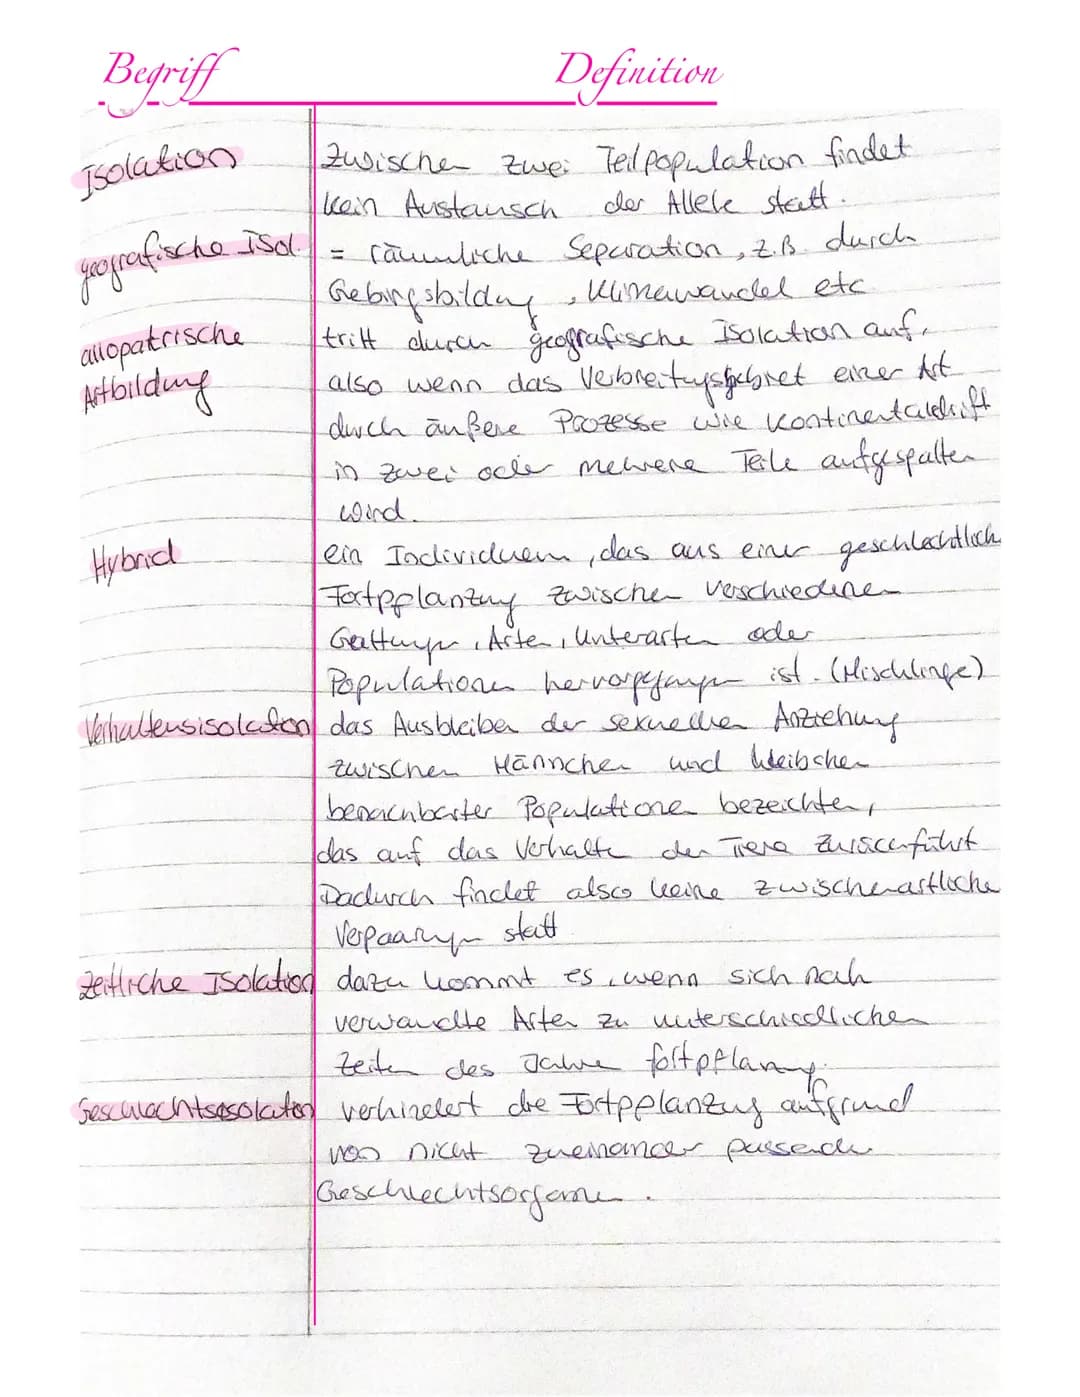 Begriff Definition
Isolation Zwischen zwei Teilpopulation findet
kein Austausch der Allele statt.
geografische Isol. = räumliche Separation, z.B. durch
Gebirgsbildung, Klimawandel etc
allopatrische tritt durch geografische Isolation auf,
Artbildung also wenn das Verbreitungsgebiet einer Art
durch äußere Prozesse wie Kontinentaldrift
in zwei oder mehrere Teile aufgespalten
wird.
Hybrid ein Individuem, das aus einer geschlechtlich
Fortpflanzung zwischen verschiedenen
Gattungen, Arten, Unterarten oder
Populationen hervorgegangen ist. (Mischlinge)
Verhaltensisolation das Ausbleiben der sexuellen Anziehung
zwischen Männchen und Weibchen
benachbarter Populationen bezeichten,
das auf das Verhalten der Tiere zurückführt
Dadurch findet also keine zwischenartliche
Verpaarungen statt
Zeitliche Isolation dazu kommt es, wenn sich nah
verwandte Arten zu unterschiedlichen
Zeiten des Jahre fortpflanzen.
Geschlechtsisolation verhindert die Fortpflanzung aufgrund
von nicht zueinander passende
Geschlechtsorgane.